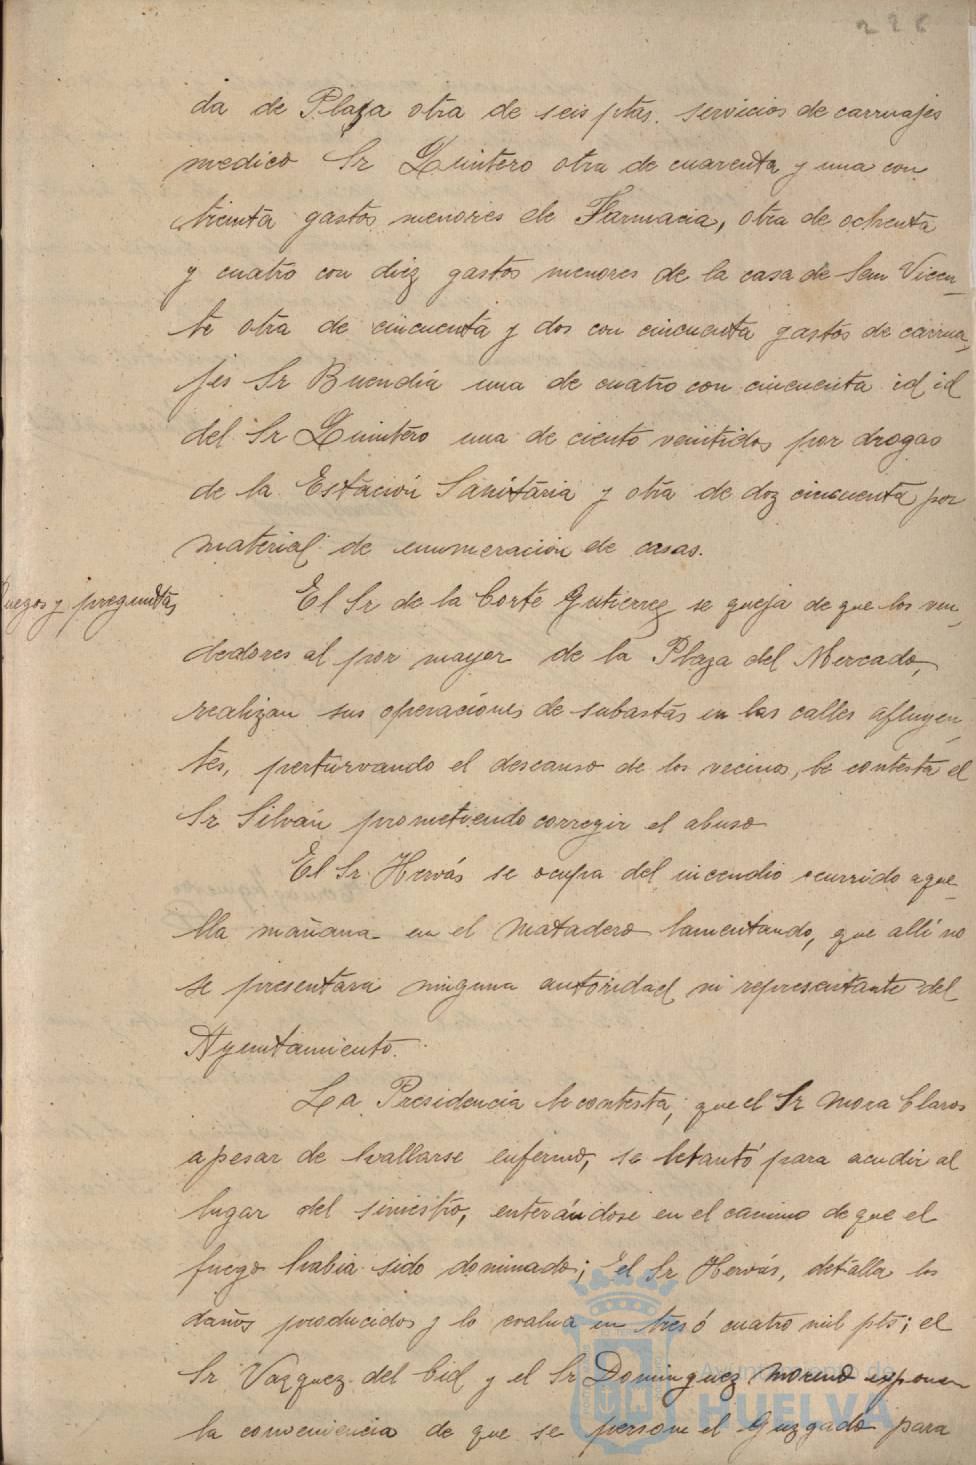 226
da de Plaza otra de seis ptas. servicios de carruajes
medico Sr Quintero otra de cuarenta y una con
treinta gastos menores de Farmacia, otra de ochenta
y cuatro con diez gastos menores de la casa de San Vicen-
te otra de cincuenta y dos con cincuenta gastos de carrua-
jes Sr Buendia una de cuatro con cincuenta id id
del Sr Quintero una de ciento veintidos por drogas
de la Estación Sanitaria y otra de doz cincuenta por
material de enumeración de casas.
Ruegos y preguntas
El Sr de la Corte Gutierrez se queja de que los ven-
dedores al por mayor de la Plaza del Mercado,
realizan sus operaciones de subastas en las calles afluyen-
tes, perturvando el descanso de los vecinos, le contesta el
Sr Silván prometiendo corregir el abuso
El Sr. Hervás se ocupa del incendio ocurrido aque-
lla mañana en el matadero lamentando, que allí no
se presentara ninguna autoridad ni representante del
Ayuntamiento.
La Presidencia le contesta, que el Sr Mora Claros
apesar de hallarse enfermo, se letantó para acudir al
lugar del siniestro, enterándose en el camino de que el
fuego habia sido dominado; el Sr Hervás, detalla los
daños producidos y lo evalua en tres ó cuatro mil pts; el
Sr Vazquez del Cid y el Sr Dominguez Moreno exponen
la conveniencia de que se persone el Juzgado para
Ayuntamiento de
HUELVA